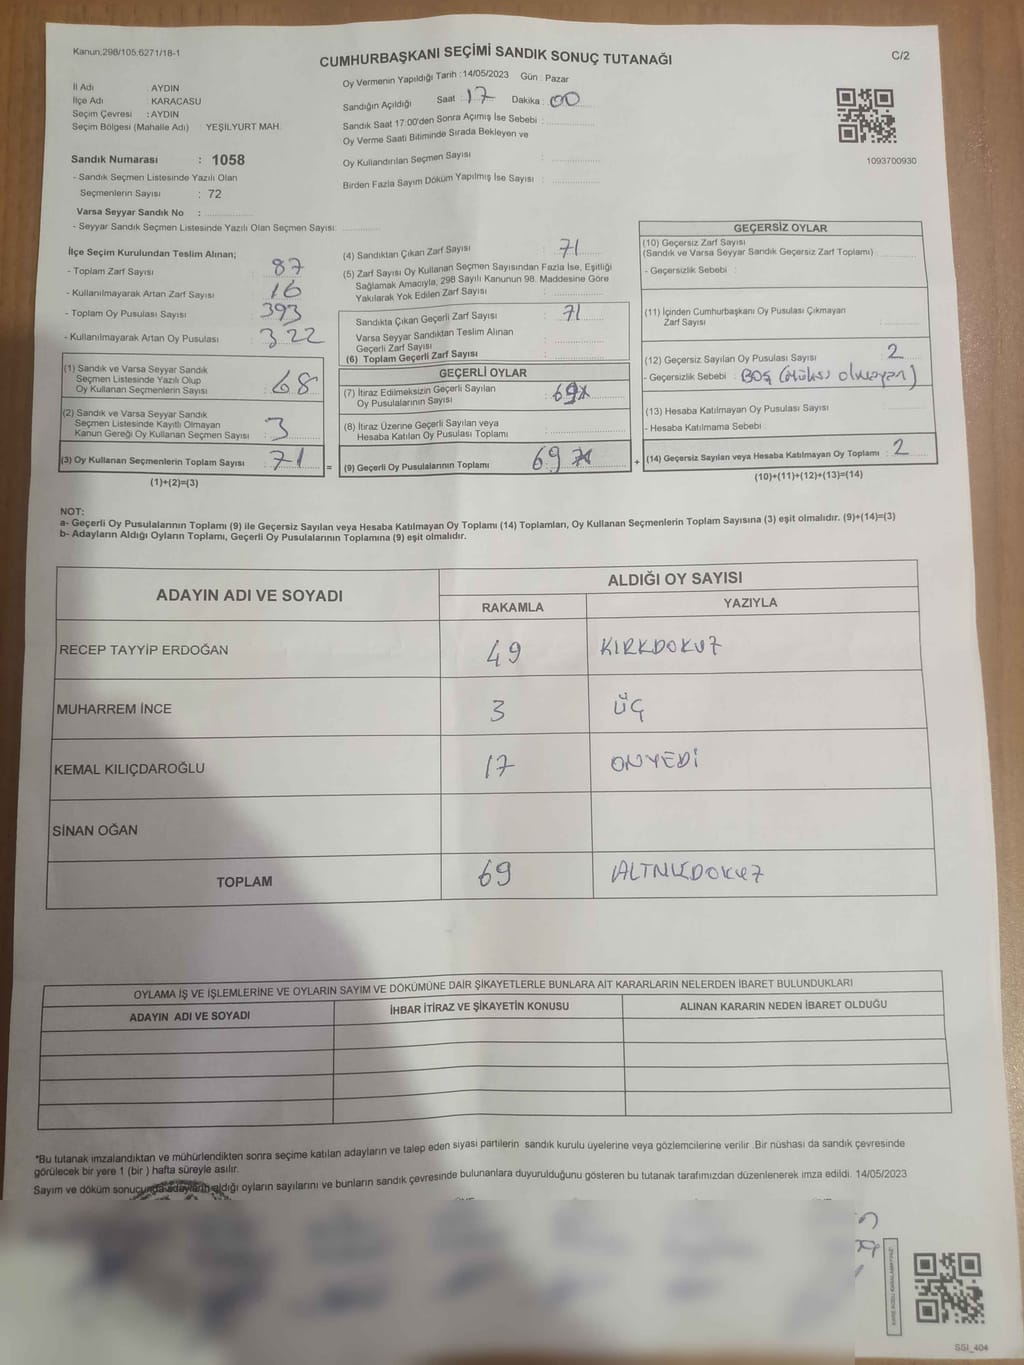 Kanun;298/105;6271/18-1
CUMHURBAŞKANI SEÇİMİ SANDIK SONUÇ TUTANAĞI
C/2
İl Adı : AYDIN
İlçe Adı : KARACASU
Seçim Çevresi : AYDIN
Seçim Bölgesi (Mahalle Adı) : YEŞİLYURT MAH.
Oy Vermenin Yapıldığı Tarih :14/05/2023 Gün : Pazar
Sandığın Açıldığı Saat 17 Dakika : 00
Sandık Saat 17:00'den Sonra Açımış İse Sebebi :
Oy Verme Saati Bitiminde Sırada Bekleyen ve
Oy Kullandırılan Seçmen Sayısı :
Birden Fazla Sayım Döküm Yapılmış İse Sayısı :
1093700930
Sandık Numarası : 1058
- Sandık Seçmen Listesinde Yazılı Olan
Seçmenlerin Sayısı : 72
Varsa Seyyar Sandık No :
- Seyyar Sandık Seçmen Listesinde Yazılı Olan Seçmen Sayısı:
İlçe Seçim Kurulundan Teslim Alınan;
- Toplam Zarf Sayısı : 87
- Kullanılmayarak Artan Zarf Sayısı : 16
- Toplam Oy Pusulası Sayısı : 393
- Kullanılmayarak Artan Oy Pusulası : 322
(1) Sandık ve Varsa Seyyar Sandık
Seçmen Listesinde Yazılı Olup
Oy Kullanan Seçmenlerin Sayısı : 68
(2) Sandık ve Varsa Seyyar Sandık
Seçmen Listesinde Kayıtlı Olmayan
Kanun Gereği Oy Kullanan Seçmen Sayısı : 3
(3) Oy Kullanan Seçmenlerin Toplam Sayısı : 71
(1)+(2)=(3)
(4) Sandıktan Çıkan Zarf Sayısı : 71
(5) Zarf Sayısı Oy Kullanan Seçmen Sayısından Fazla İse, Eşitliği
Sağlamak Amacıyla, 298 Sayılı Kanunun 98. Maddesine Göre
Yakılarak Yok Edilen Zarf Sayısı :
Sandıkta Çıkan Geçerli Zarf Sayısı : 71
Varsa Seyyar Sandıktan Teslim Alınan
Geçerli Zarf Sayısı :
(6) Toplam Geçerli Zarf Sayısı :
GEÇERLİ OYLAR
(7) İtiraz Edilmeksizin Geçerli Sayılan
Oy Pusulalarının Sayısı : 69
(8) İtiraz Üzerine Geçerli Sayılan veya
Hesaba Katılan Oy Pusulası Toplamı :
= (9) Geçerli Oy Pusulalarının Toplamı : 69
GEÇERSİZ OYLAR
(10) Geçersiz Zarf Sayısı
(Sandık ve Varsa Seyyar Sandık Geçersiz Zarf Toplamı) :
- Geçersizlik Sebebi :
(11) İçinden Cumhurbaşkanı Oy Pusulası Çıkmayan
Zarf Sayısı :
(12) Geçersiz Sayılan Oy Pusulası Sayısı : 2
- Geçersizlik Sebebi : BOŞ
(13) Hesaba Katılmayan Oy Pusulası Sayısı :
- Hesaba Katılmama Sebebi :
+ (14) Geçersiz Sayılan veya Hesaba Katılmayan Oy Toplamı : 2
(10)+(11)+(12)+(13)=(14)
NOT:
a- Geçerli Oy Pusulalarının Toplamı (9) ile Geçersiz Sayılan veya Hesaba Katılmayan Oy Toplamı (14) Toplamları, Oy Kullanan Seçmenlerin Toplam Sayısına (3) eşit olmalıdır. (9)+(14)=(3)
b- Adayların Aldığı Oyların Toplamı, Geçerli Oy Pusulalarının Toplamına (9) eşit olmalıdır.
ADAYIN ADI VE SOYADI
ALDIĞI OY SAYISI
RAKAMLA YAZIYLA
RECEP TAYYİP ERDOĞAN 49 KIRKDOKUZ
MUHARREM İNCE 3 ÜÇ
KEMAL KILIÇDAROĞLU 17 ONYEDİ
SİNAN OĞAN
TOPLAM 69
OYLAMA İŞ VE İŞLEMLERİNE VE OYLARIN SAYIM VE DÖKÜMÜNE DAİR ŞİKAYETLERLE BUNLARA AİT KARARLARIN NELERDEN İBARET BULUNDUKLARI
ADAYIN ADI VE SOYADI İHBAR İTİRAZ VE ŞİKAYETİN KONUSU ALINAN KARARIN NEDEN İBARET OLDUĞU
*Bu tutanak imzalandıktan ve mühürlendikten sonra seçime katılan adayların ve talep eden siyasi partilerin sandık kurulu üyelerine veya gözlemcilerine verilir .Bir nüshası da sandık çevresinde
görülecek bir yere 1 (bir ) hafta süreyle asılır.
Sayım ve döküm sonucunda adayların aldığı oyların sayılarını ve bunların sandık çevresinde bulunanlara duyurulduğunu gösteren bu tutanak tarafımızdan düzenlenerek imza edildi. 14/05/2023
SSI_404